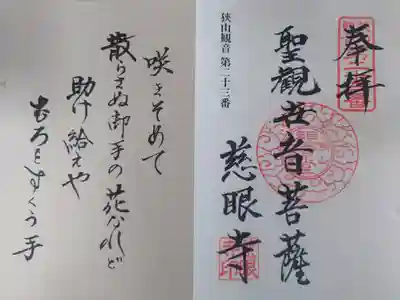 奉拝
聖觀世音菩薩
慈眼寺
狭山観音 第二十三番
咲きそめて
散らさぬ御手の花なれど
助け給えや
むろとすくう手